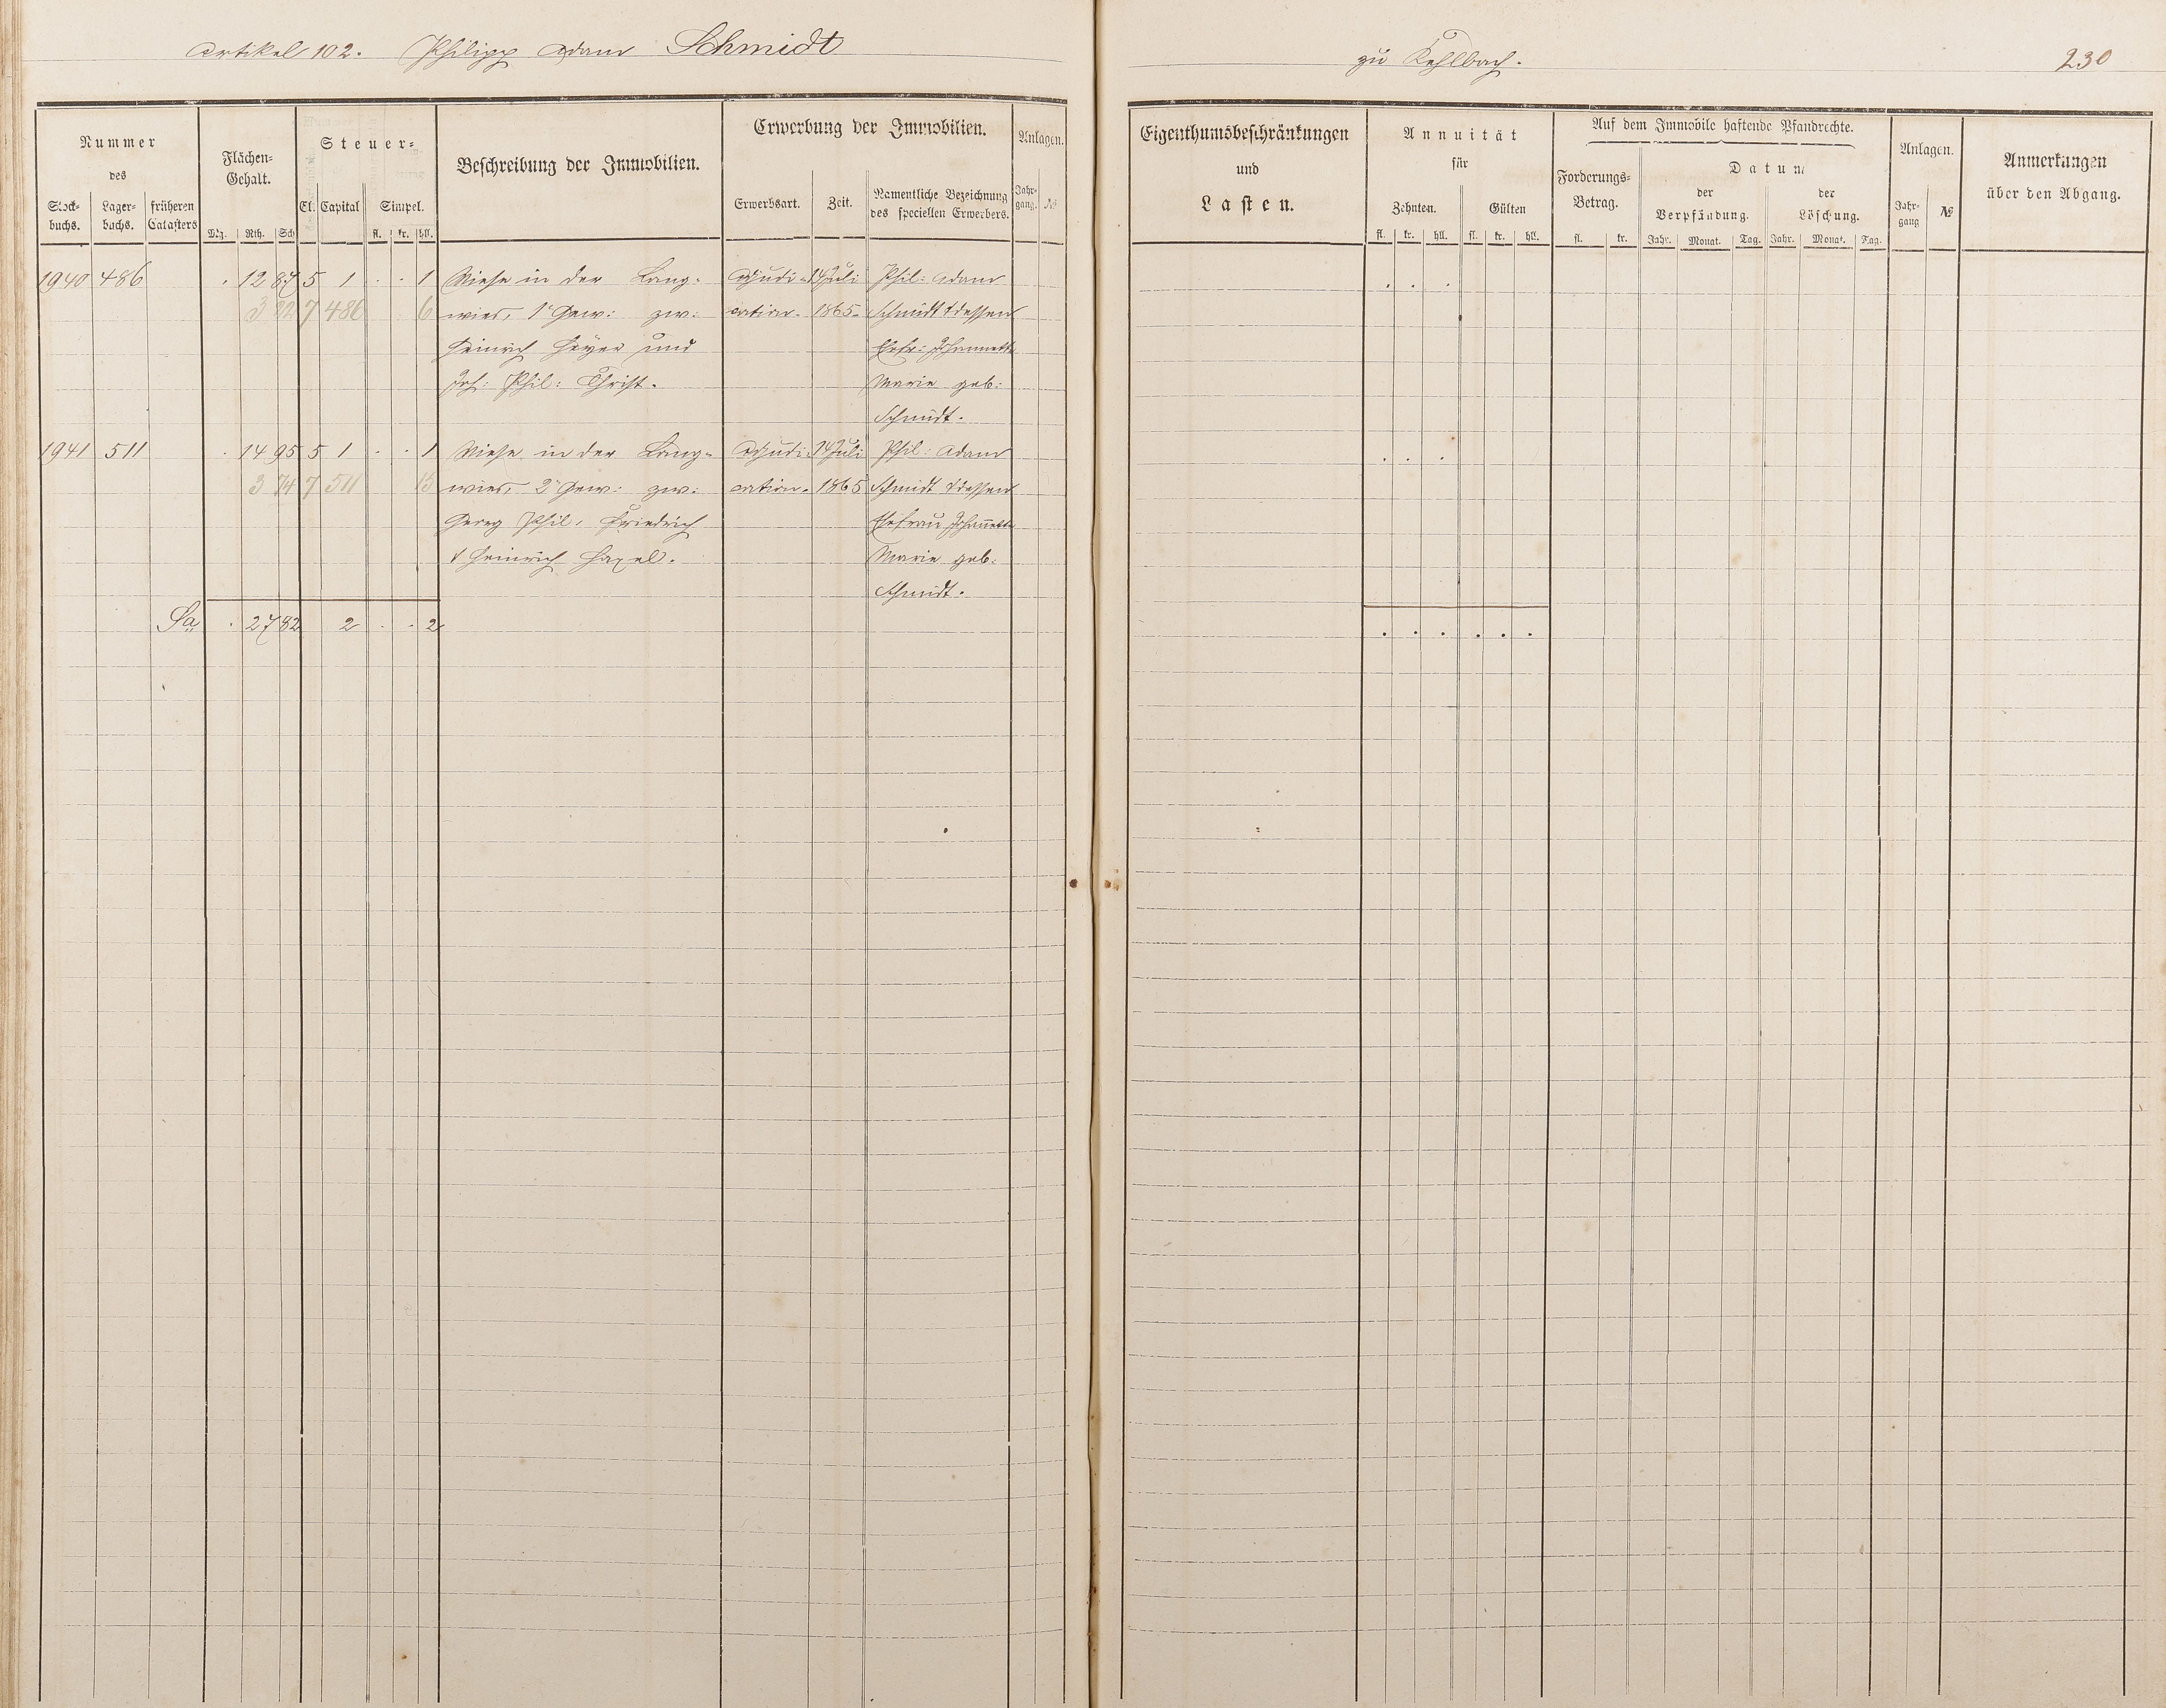 Artikel 102. Philipp Adam Schmidt
zu Kehlbach.
230
Nummer
des
Stock-
buchs.
Lager-
buchs.
früheren
Catasters
Flächen-
Gehalt.
Mg. Rth. Sch
Steuer-
Cl. Capital Simpel.
fl. kr. hll.
Beschreibung der Immobilien.
Erwerbung der Immobilien.
Erwerbsart. Zeit.
Namentliche Bezeichnung
des speciellen Erwerbers.
Anlagen.
Jahr-
gang. №
Eigenthumsbeschränkungen
und
Lasten.
Annuität
für
Zehnten. Gülten
fl. kr. hll. fl. kr. hll.
Auf dem Immobile haftende Pfandrechte.
Forderungs-
Betrag.
fl. kr.
Datum
der
Verpfändung.
der
Löschung.
Jahr. Monat. Tag. Jahr. Monat. Tag.
Anlagen.
Jahr-
gang №
Anmerkungen
über den Abgang.
1940 486 . 12 87 5 1 . . 1 Wiese in der Lang- Adjudi- 14 Juli Phil: Adam
3 22 7 486 6 wies, 1r Gew: zw: cation. 1865. Schmidt & dessen
Heinrich Heyer und Ehefr: Johannette
Joh: Phil: Christ. Marie geb:
Schmidt.
1941 511 . 14 95 5 1 . . 1 Wiese in der Lang- Adjudi- 14 Juli Phil: Adam
3 74 7 511 15 wies, 2r Gew: zw: cation. 1865 Schmidt & dessen
Georg Phil. Friedrich Ehefrau Johannette
& Heinrich Marie geb:
Schmidt.
Sa . 27 82 2 . . 2